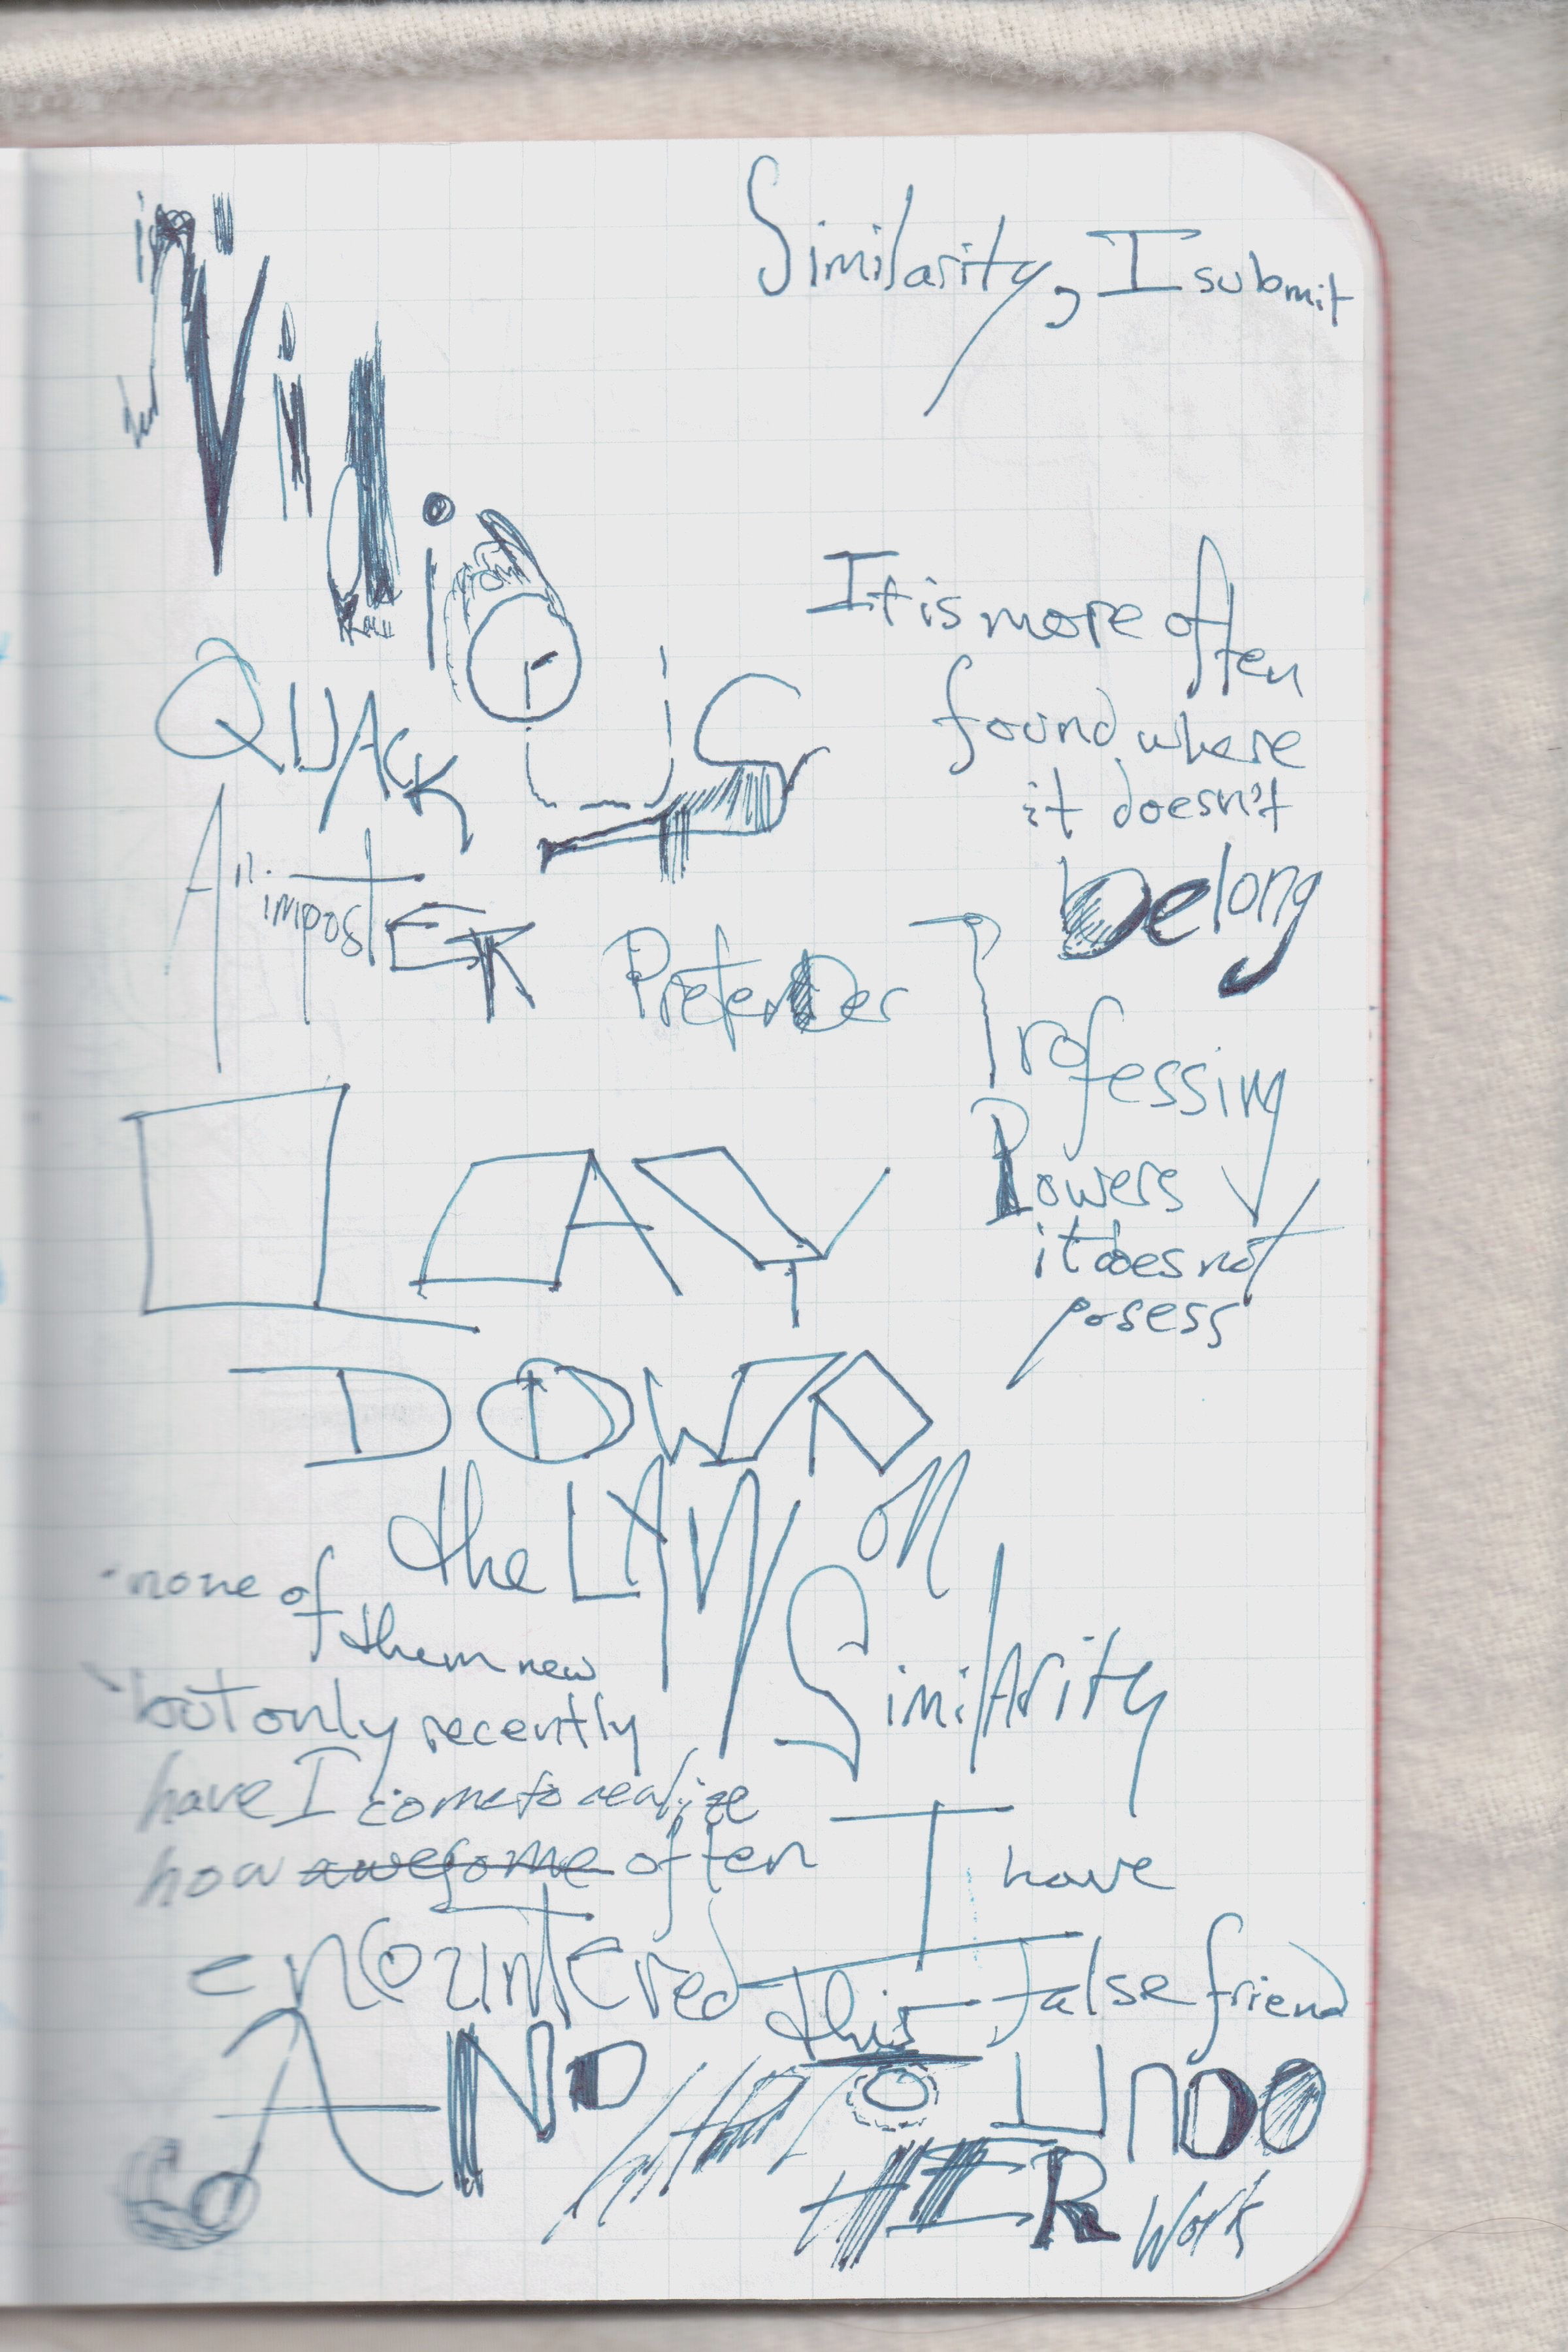 Similarity, I submit
is
Vidious
It is more often
found where
it doesn't
belong
QUACK
A "impostER
PretenDer
Professing
Powers
it does not
posess
I LAY
DOWN
the LAW on
SimilArity
none of
them new
but only recently
have I come to realize
how awesome often I have
encountered this false friend
AND to UNDO
HER Work